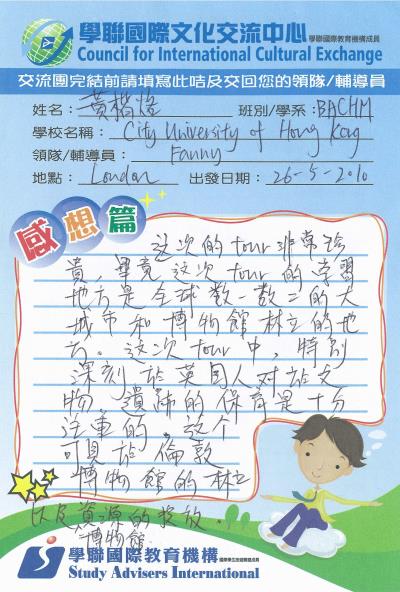 學聯國際文化交流中心 學聯國際教育機構成員
Council for International Cultural Exchange
交流團完結前請填寫此咭及交回您的領隊/輔導員
姓名：黃楷 班別/學系：BACHM
學校名稱：City University of Hong Kong
領隊/輔導員：Fanny
地點：London 出發日期：26-5-2010
感想篇
这次的tour非常珍
貴，畢竟这次tour的学習
地方是全球數一數二的大
城市和博物館林立的地
方。这次tour中，特別
深刻於英国人对於文
物、遺跡的保育是十分
注重的。这个
可見於倫敦
博物館的林立
以及資源的投放。
博物館
學聯國際教育機構
Study Advisers International